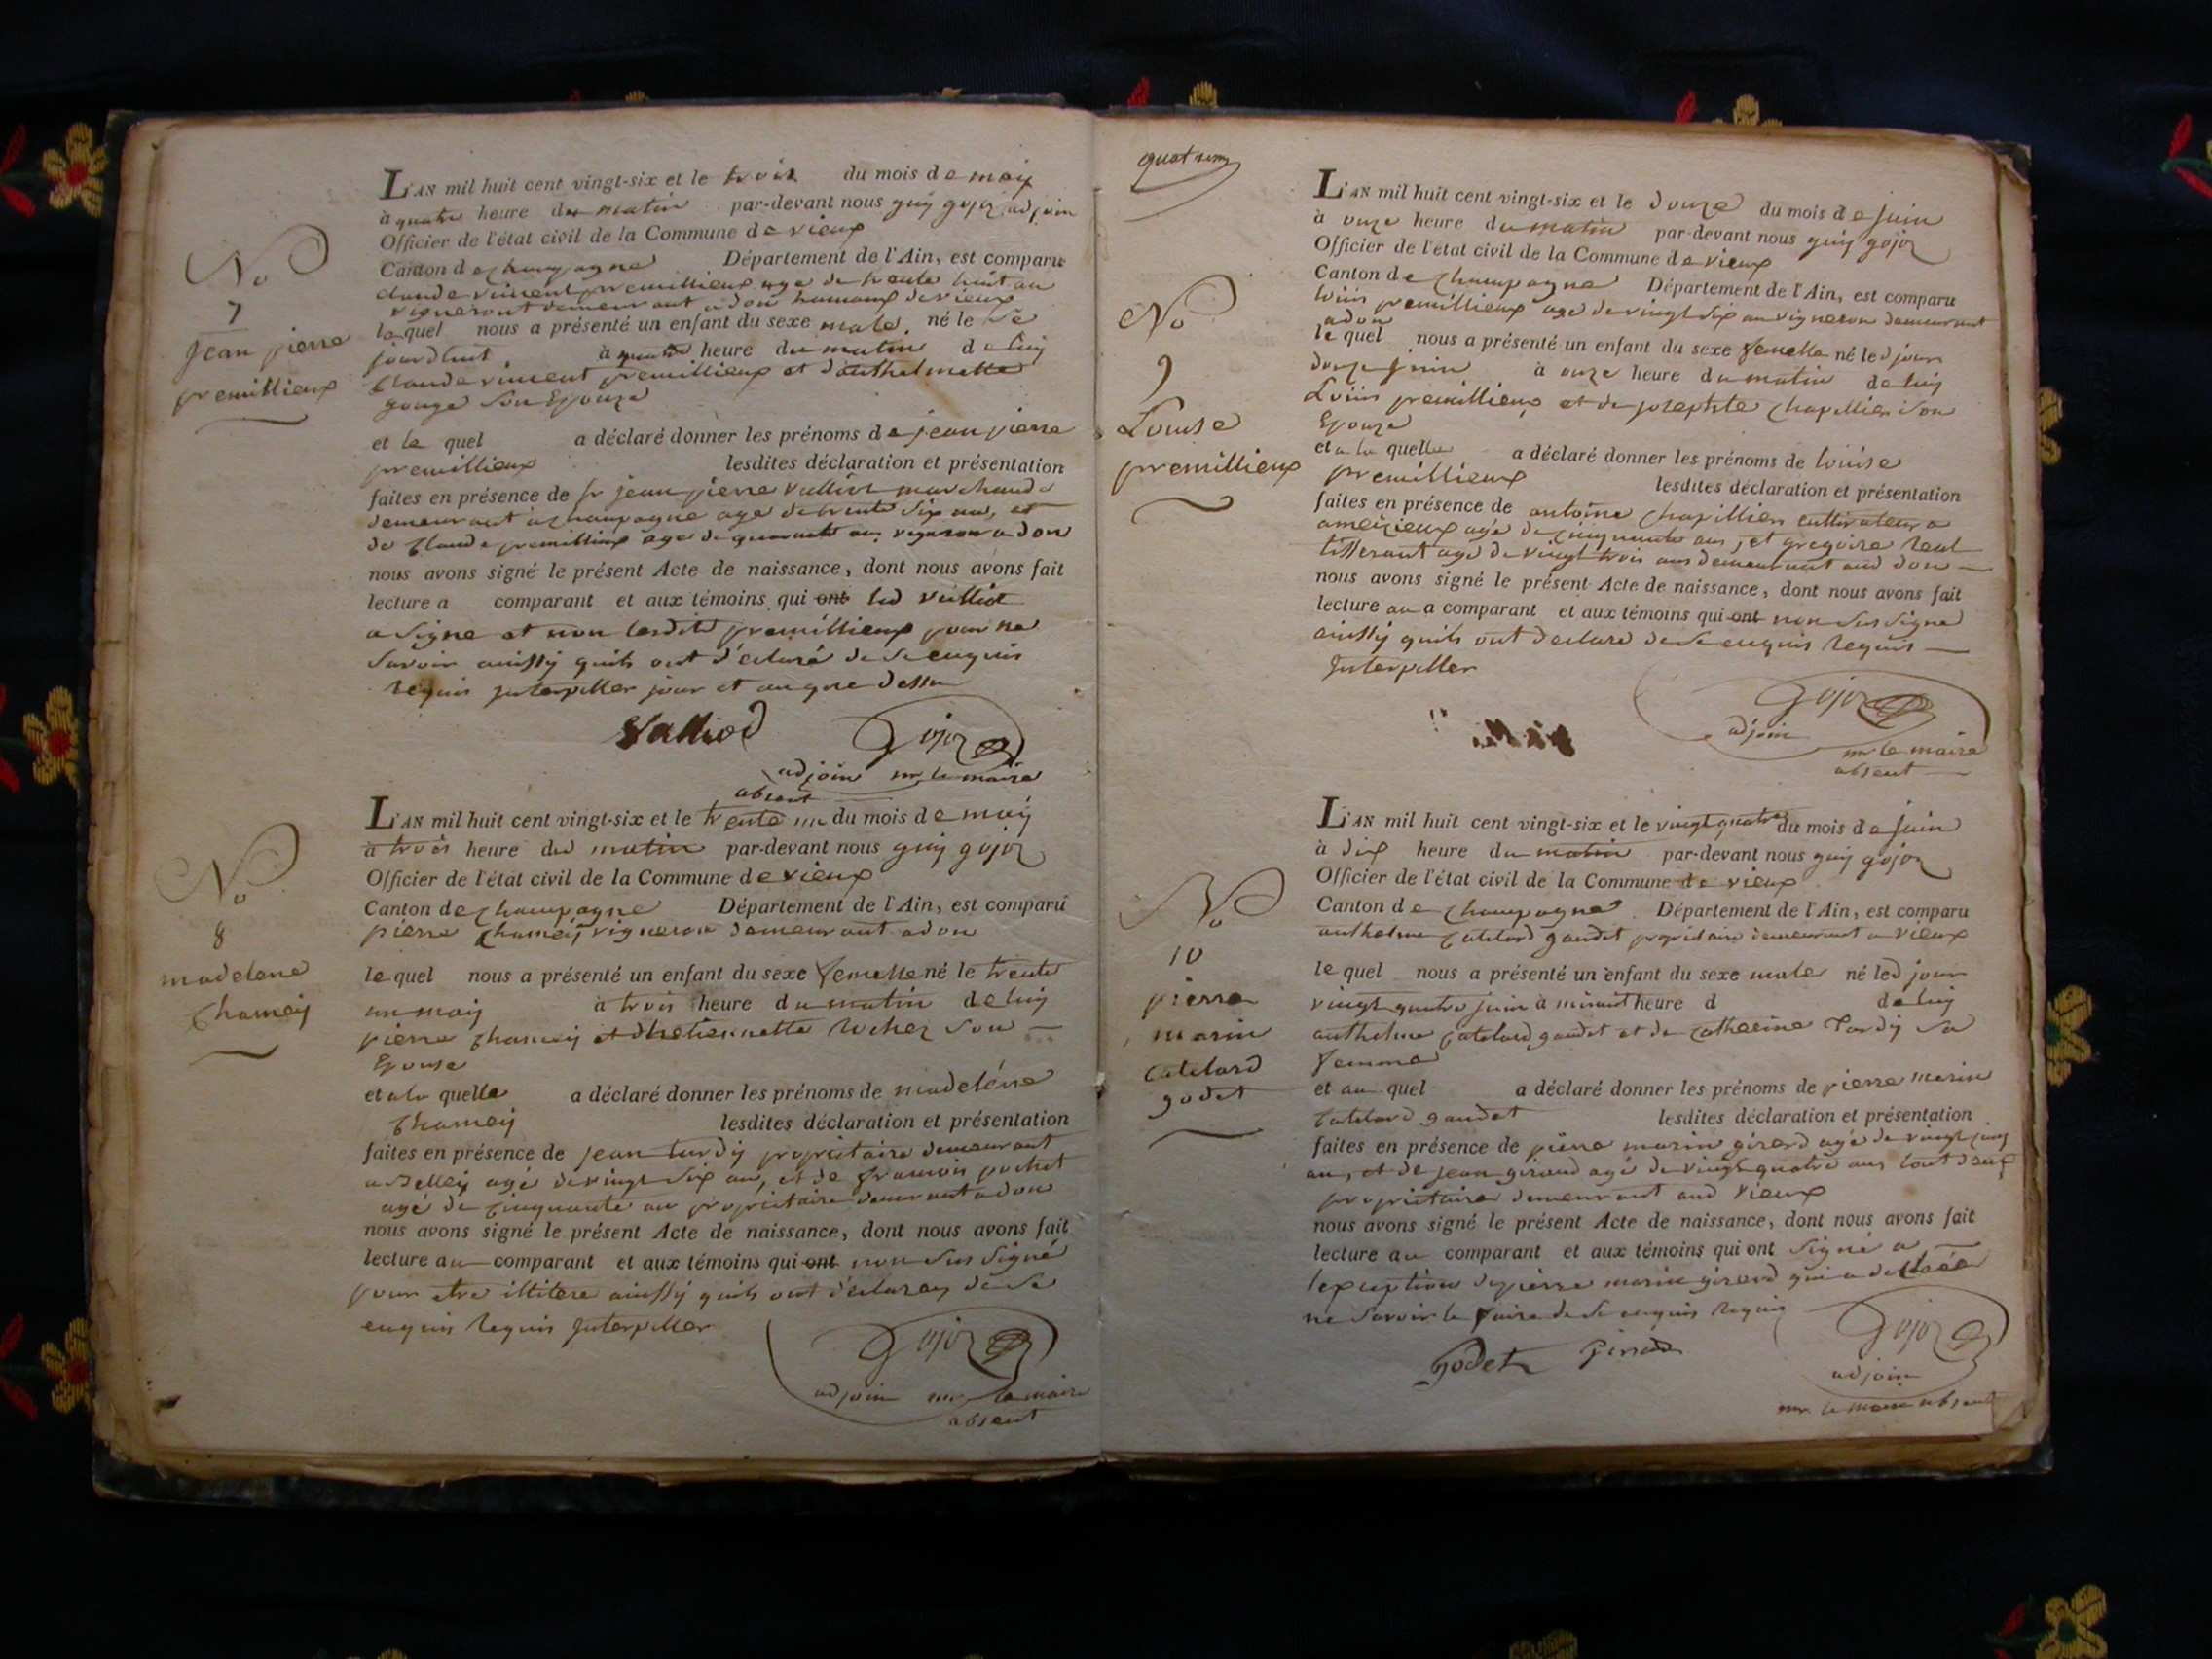 L'AN mil huit cent vingt-six et le trois du mois de may
à quatre heure du matin par-devant nous guy gojoz adjoin
Officier de l'état civil de la Commune de vieux
Canton de champagne Département de l'Ain, est comparu
claude vincent premillieux age de trente huit an
vigneront demeurant a don hameaux de vieux
le quel nous a présenté un enfant du sexe male né le
jourdhuit à quatre heure du matin de luy
claude vincent premillieux et d'anthelmette
gouge son Epouze
et le quel a déclaré donner les prénoms de jean pierre
premillieux lesdites déclaration et présentation
faites en présence de sr jean pierre valliod marchand
demeurant a champagne age de trente six ans, et
de claude premillieux age de quarante ans vigneron a don
nous avons signé le présent Acte de naissance, dont nous avons fait
lecture a comparant et aux témoins qui ont led valliod
a signe et non lesdits premillieux pour ne
savoir ainssy quils ont déclaré de ce enquis
requis jnterpeller jour et an que dessu
Valliod Gojoz
adjoin mr le maire
absent
No
7
Jean pierre
premillieux
L'AN mil huit cent vingt-six et le trente un du mois de may
à trois heure du matin par-devant nous guy gojoz
Officier de l'état civil de la Commune de vieux
Canton de champagne Département de l'Ain, est comparu
pierre chamey vigneron demeurant a don
le quel nous a présenté un enfant du sexe femelle né le trente
un may à trois heure du matin de luy
pierre chamey et dhetiennette rochez son
Epouse
et a la quelle a déclaré donner les prénoms de madeléne
chamey lesdites déclaration et présentation
faites en présence de jean tardy propriétaire demeurant
a Belley agé de vingt six an, et de francois pochet
agé de cinquante an propriétaire demeurant a don
nous avons signé le présent Acte de naissance, dont nous avons fait
lecture au comparant et aux témoins qui ont non sus signé
pour etre illitere ainssy quils ont déclaré de ce
enquis requis jnterpeller
Gojoz
adjoin mr le maire
absent
No
8
madelene
chamey
quatrieme
L'AN mil huit cent vingt-six et le douze du mois de juin
à onze heure du matin par-devant nous guy gojoz
Officier de l'état civil de la Commune de vieux
Canton de champagne Département de l'Ain, est comparu
louis premillieux age de vingt six an vigneron demeurant
a don
le quel nous a présenté un enfant du sexe femelle né led jour
douze juin à onze heure du matin de luy
Louis premillieux et de josephte chapellier son
Epouze
et a la quelle a déclaré donner les prénoms de louise
premillieux lesdites déclaration et présentation
faites en présence de antoine chapillier cultivateur a
ameizieux agé de cinquante ans, et gregoire
tisserant agé de vingt trois ans demeurant aud don
nous avons signé le présent Acte de naissance, dont nous avons fait
lecture au a comparant et aux témoins qui ont non sus signé
ainssy quils ont declaré de ce enquis requis
jnterpeller
Gojoz
adjoin
mr le maire
absent
No
9
Louise
premillieux
L'AN mil huit cent vingt-six et le vingt quatre du mois de juin
à dix heure du matin par-devant nous guy gojoz
Officier de l'état civil de la Commune de vieux
Canton de champagne Département de l'Ain, est comparu
anthelme catelard gaudet propriétaire demeurant a vieux
le quel nous a présenté un enfant du sexe male né led jour
vingt quatre juin à minuit heure d de luy
anthelme catelard gaudet et de catherine Tardy sa
femme
et au quel a déclaré donner les prénoms de pierre marin
catelard gaudet lesdites déclaration et présentation
faites en présence de pierre marin girard agé de vingt cinq
an, et de jean girard agé de vingt quatre ans tout deux
propriétaire demeurant aud vieux
nous avons signé le présent Acte de naissance, dont nous avons fait
lecture au comparant et aux témoins qui ont signé a
lexception de pierre marin girard qui a declaré
ne savoir le faire de ce enquis requis
Godet Girard Gojoz
adjoin
mr le maire absent
No
10
pierre
marin
catelard
godet